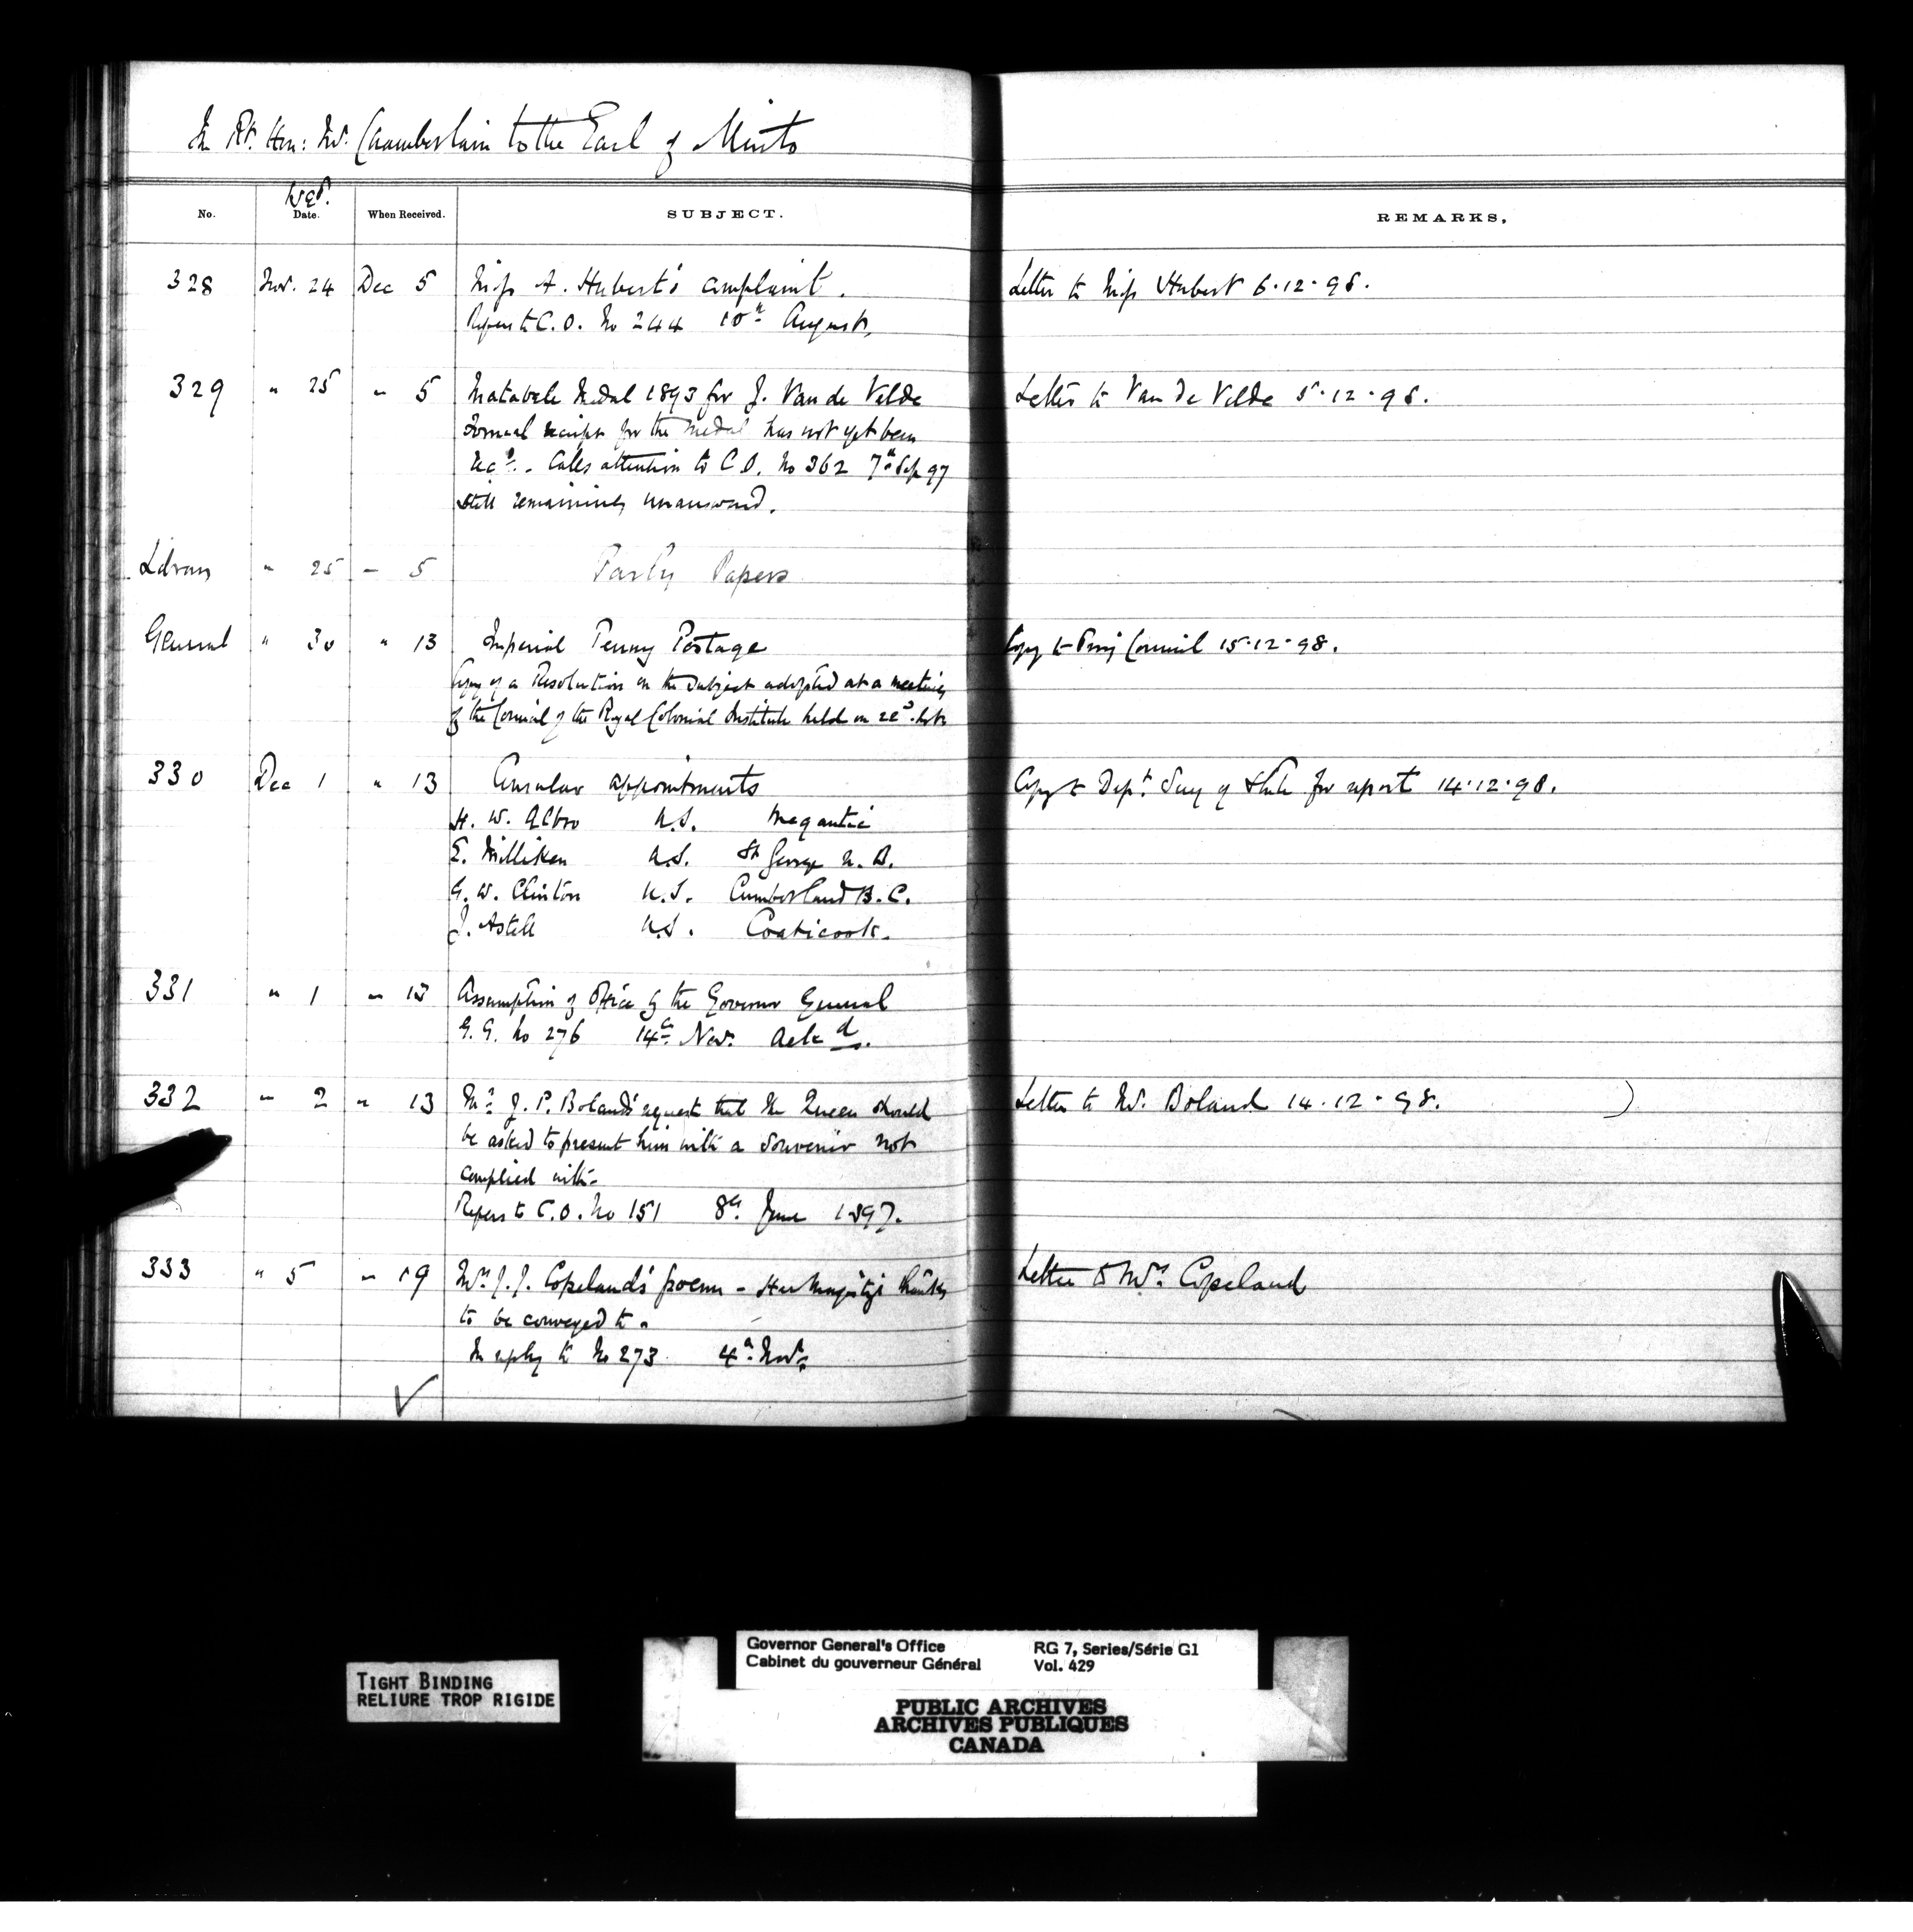 The Rt. Hon: Mr. Chamberlain to the Earl of Minto
1898.
No. Date. When Received. SUBJECT. REMARKS.
328 Nov. 24 Dec 5 Miss A. Hubert's complaint. Letter to Miss Hubert 6·12·98.
Refers to C.O. No 244 10th August.
329 " 25 " 5 Matabele Medal 1893 for J. Van de Velde Letter to Van de Velde 5·12·98.
Formal receipt for the medal has not yet been
recd. Calls attention to C.O. No 362 7th Sep 97
still remaining unanswered.
" 25 " 5 Parly Papers
General " 30 " 13 Imperial Penny Postage Copy to Privy Council 15·12·98.
Copy of a Resolution on the subject adopted at a meeting
of the Council of the Royal Colonial Institute held on
330 Dec 1 " 13 Consular appointments Copy to Dept. Secy of State for report 14·12·98.
H. W. Albro U.S. Megantic
E. Milliken U.S. St George N.B.
G. W. Clinton U.S. Cumberland B.C.
J. Astell U.S. Coaticook.
331 " 1 " 13 Assumption of Office by the Governor General
G.G. No 276 14th Nov. Ackd.
332 " 2 " 13 Mr J. P. Boland's request that the Queen should Letter to Mr. Boland 14·12·98.
be asked to present him with a souvenir not
complied with.
Refers to C.O. No 151 8th June 1897.
333 " 5 " 19 J. J. Copeland's poem - Her Majesty's thanks Letter to Copeland
to be conveyed to.
In reply to No 273 4th Novr.
TIGHT BINDING
RELIURE TROP RIGIDE
Governor General's Office RG 7, Series/Série G1
Cabinet du gouverneur Général Vol. 429
PUBLIC ARCHIVES
ARCHIVES PUBLIQUES
CANADA